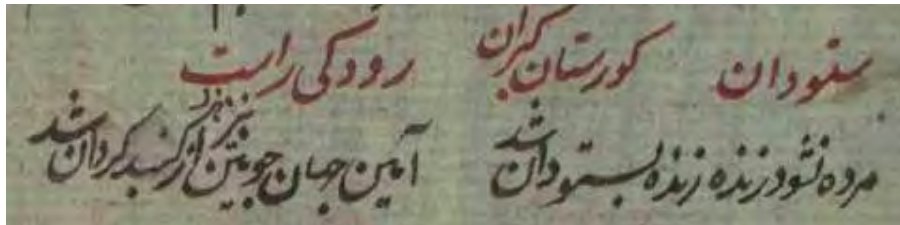 ستودان کورستان کبران رودکی راست
مرده نشود زنده زنده بستودان شد آیین جهان جونین از کنبد کردان شد